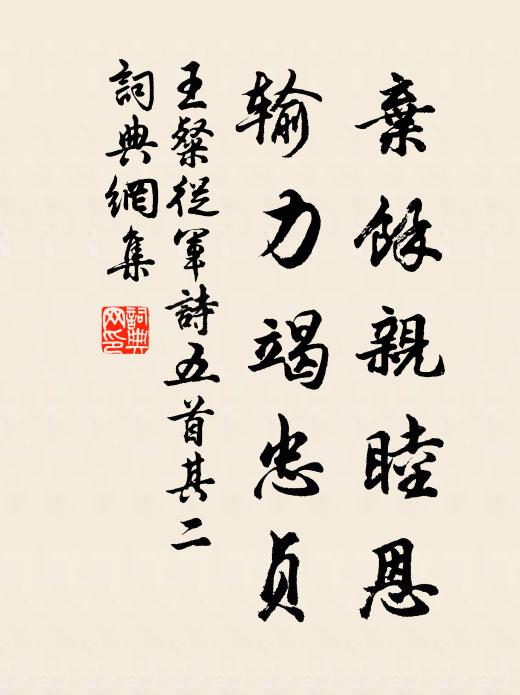 棄餘親睦恩
输力竭忠貞
王粲從軍詩五首其二
詞典網集
詞典网印